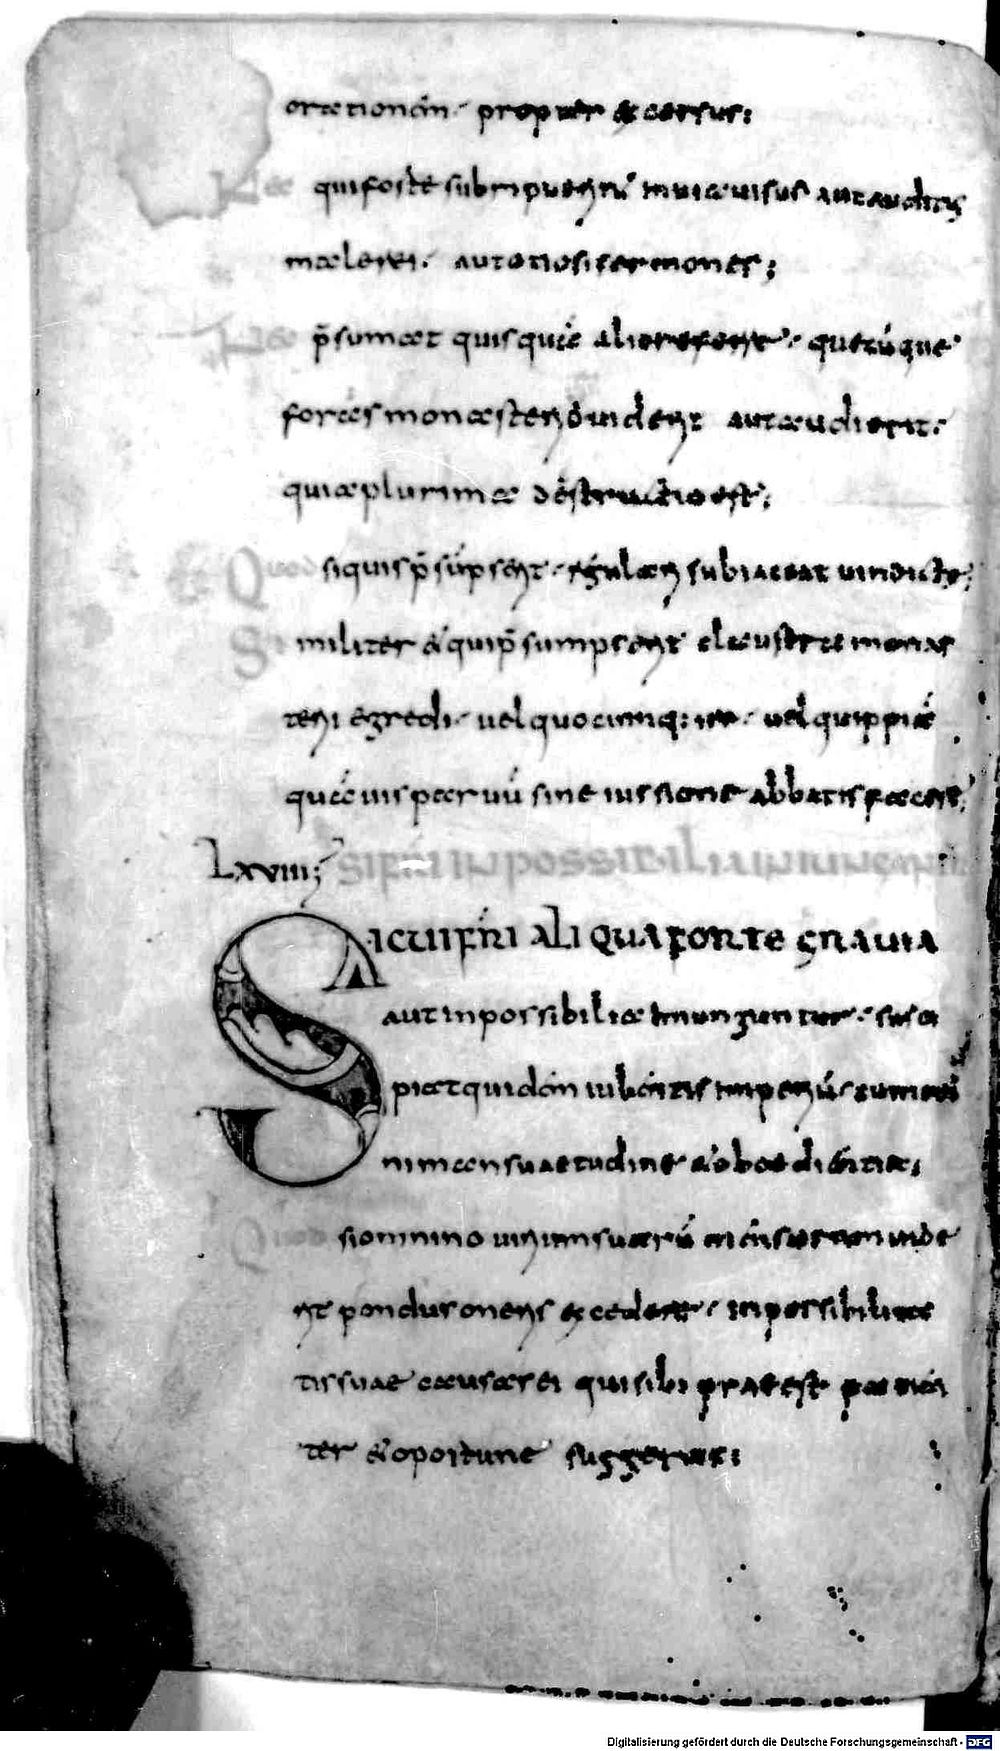 orationem. propter excessus;
Nec qui foste subripuerīt in uia uisus aut auditus
malerei. aut otiosi sermones;
Nec p̄sumat quisquā alio referre. quecūque
foras monasteriū uiderit aut audierit.
quia plurima destructio est;
Quod si quis p̄sūpserit. regulari subiaceat uindicte;
Similiter & qui p̄sumpserit claustra monas
terii egredi. uel quocumq; ire. uel quippiā
quāuis paruū sine iussione abbatis facere;
LXVIII; SI FRI INPOSSIBILIA INIUNGUNTUR
SI CUI FRI ALIQUA FORTE GRAUIA
aut inpossibilia iniunguntur. susci
piat quidem iubentis imperiū. cum om
ni mansuaetudine & oboedientia;
Quod si omnino uirium suarū mensuram uide
rit pondus oneris excedere. inpossibilita
tis suae causas ei qui sibi praeest patien
ter & oportune suggerat;
Digitalisierung gefördert durch die Deutsche Forschungsgemeinschaft - DFG